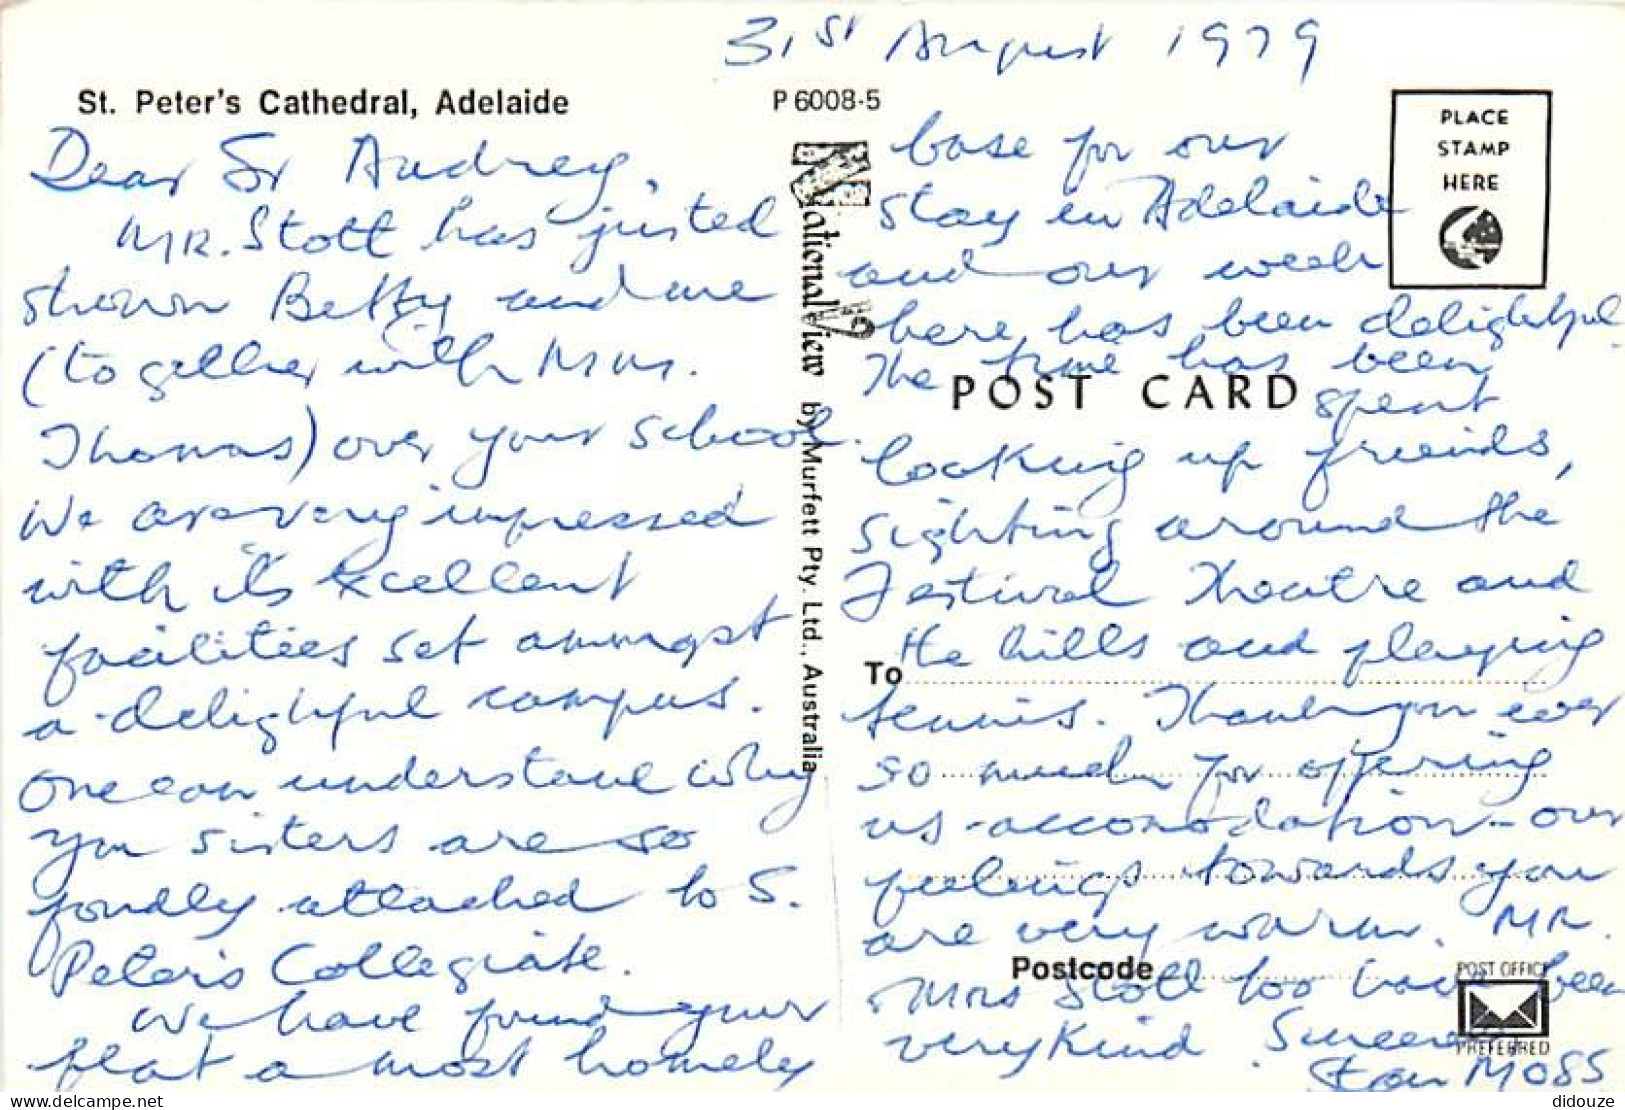 31st August 1979
St. Peter's Cathedral, Adelaide
P 6008-5
Dear Sr Audrey,
MR. Stott has justed
shown Betty and me
(together with Mrs.
Thomas) over your school.
We are very impressed
with it's excellent
facilities set amongst
a delightful campus.
One can understand why
you sisters are so
fondly attached to S.
Peter's Collegiate.
We have found your
flat a most homely
National View by Murfett Pty. Ltd., Australia
PLACE
STAMP
HERE
base for our
stay in Adelaide
and our week
here has been delightful.
The time has been
POST CARD
spent
looking up friends,
sighting around the
Festival Theatre and
the hills and playing
To
tennis. Thank you ever
so much for offering
us accomodation - our
feelings towards you
are very warm. MR.
Postcode
& Mrs Stott too have been
very kind. Sincerely
POST OFFICE
PREFERRED
Stan MOSS
delcampe.net
didouze